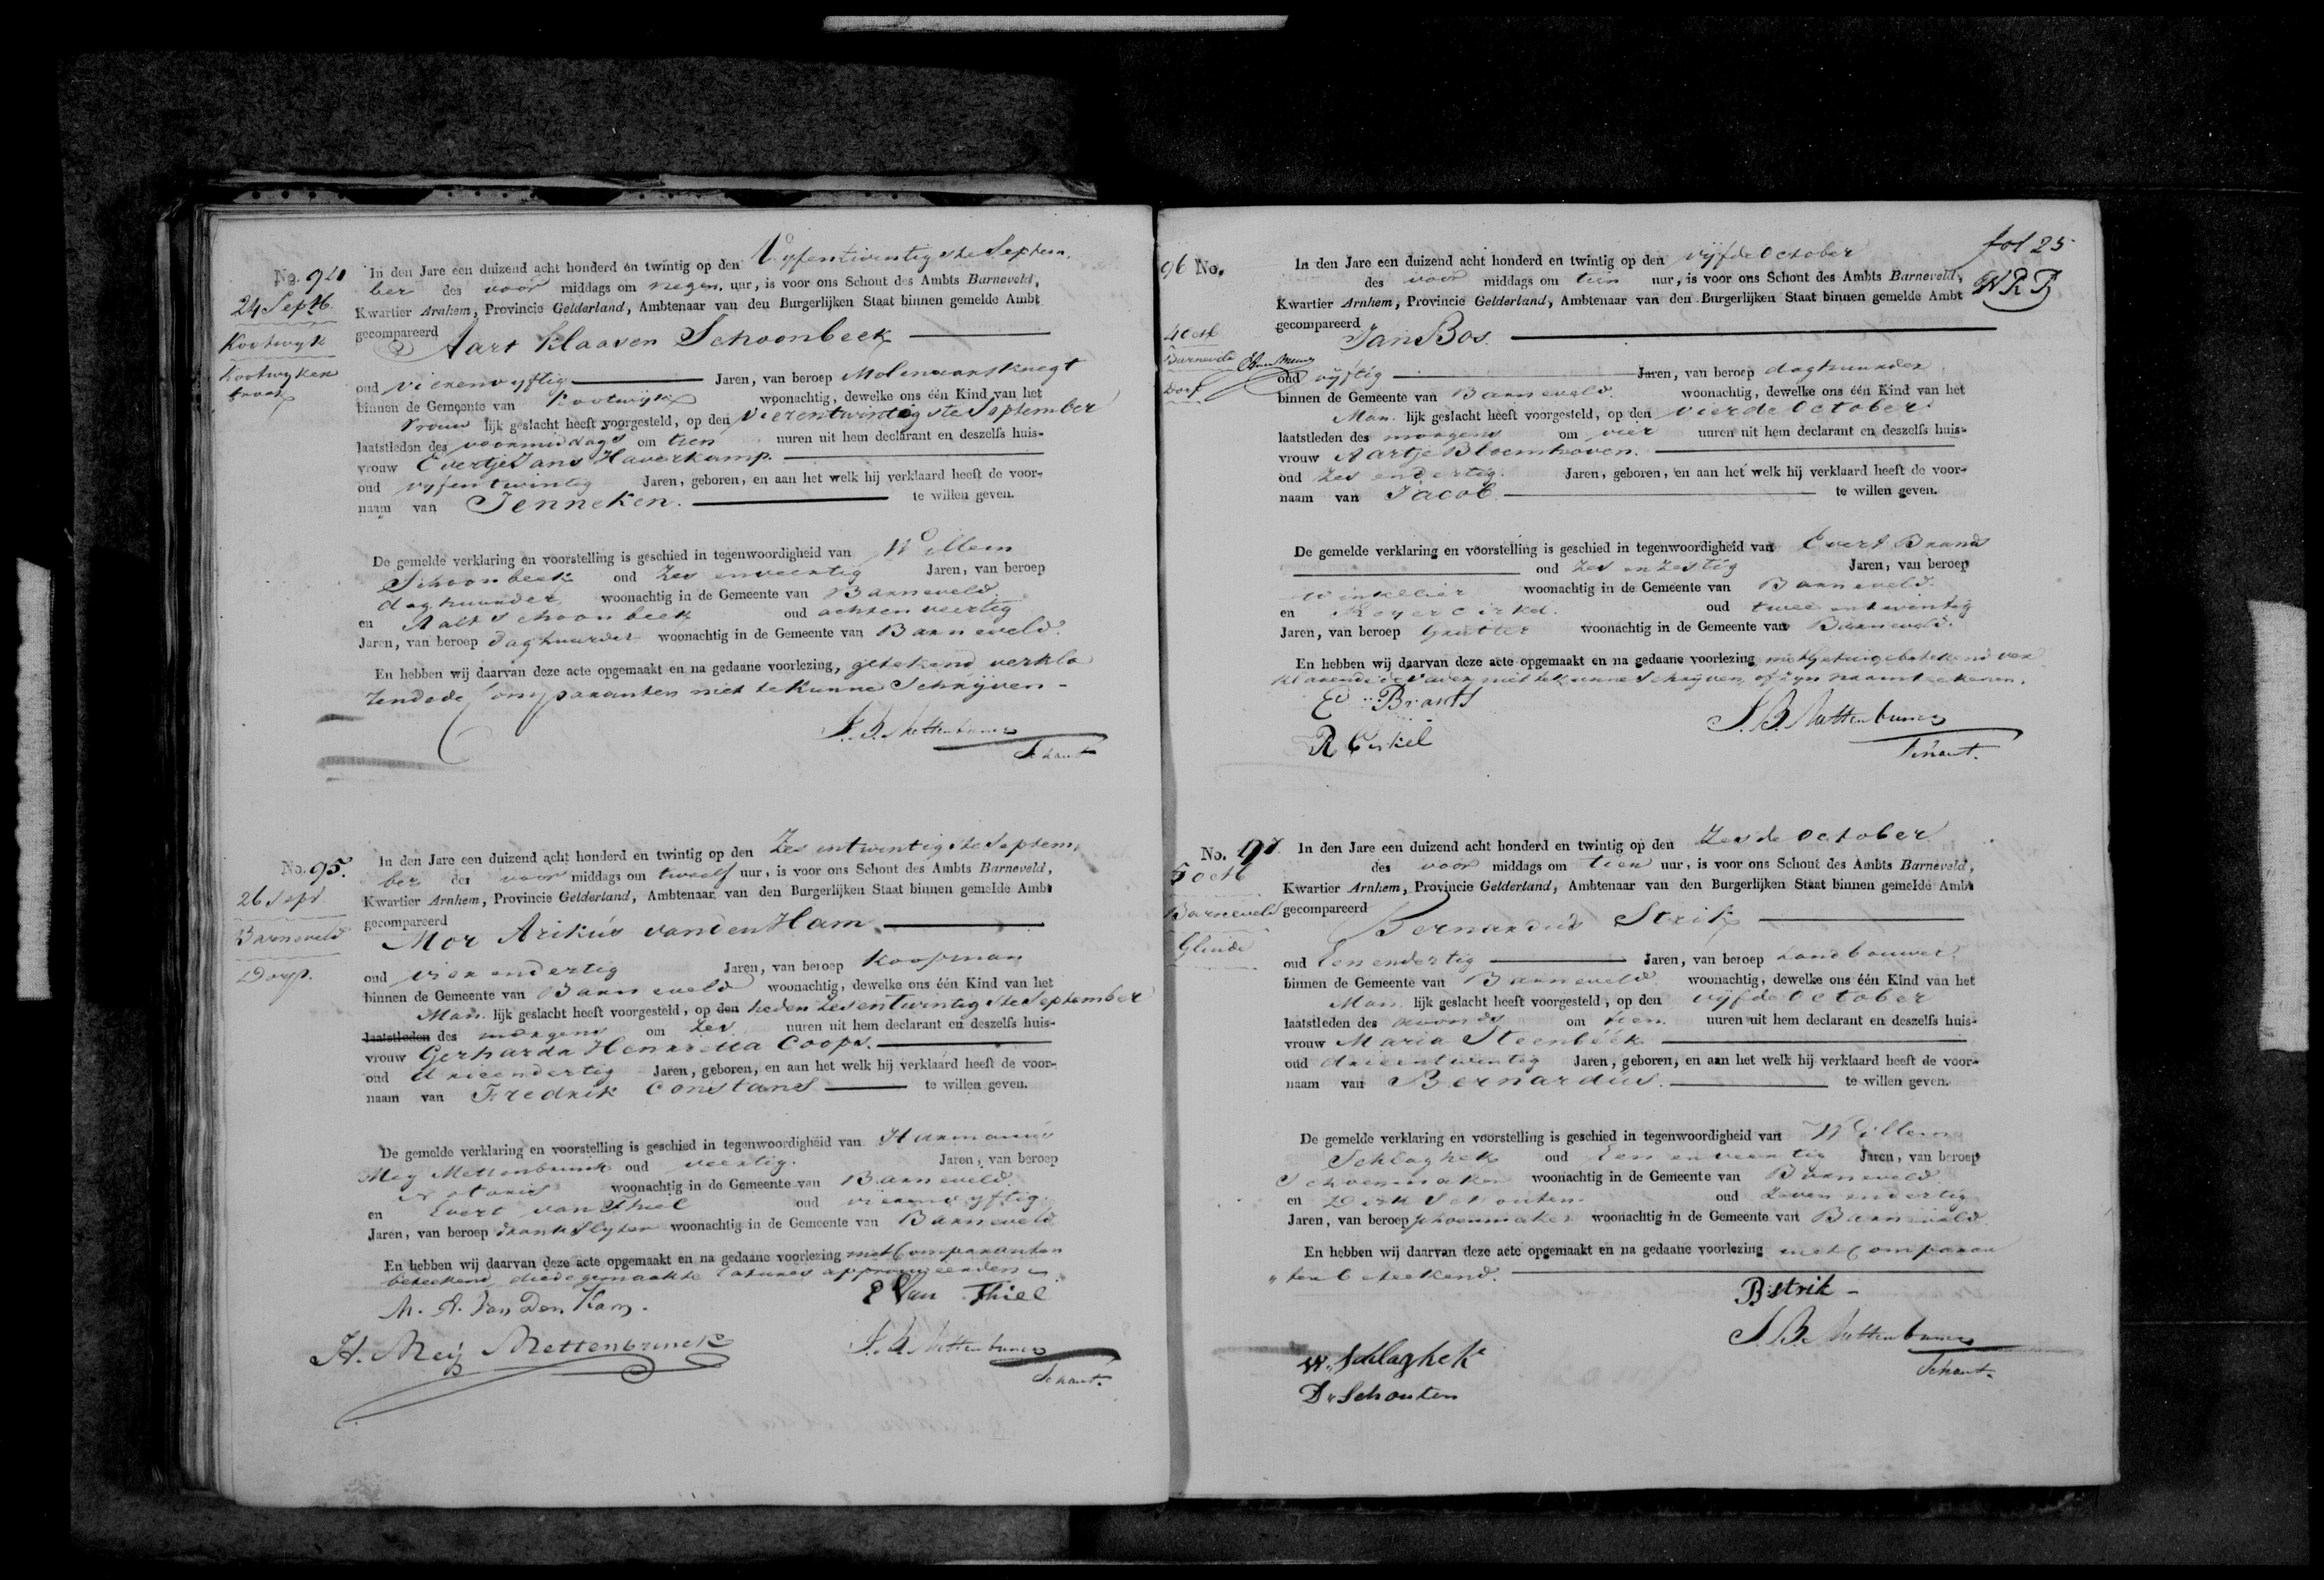 No. 94
24 Septb.
Kootwyk
Kootwyker
broek
In den Jare een duizend acht honderd en twintig op den Vyfentwintigste Septem,
ber des voor middags om negen uur, is voor ons Schout des Ambts Barneveld,
Kwartier Arnhem, Provincie Gelderland, Ambtenaar van den Burgerlijken Staat binnen gemelde Ambt
gecompareerd Aart Klaasen Schoonbeek
oud vierenvyftig Jaren, van beroep Molenaarsknegt
binnen de Gemeente van Kootwijk woonachtig, dewelke ons één Kind van het
Vrouw lijk geslacht heeft voorgesteld, op den Vierentwintigste September
laatstleden des voormiddags om tien uuren uit hem declarant en deszelfs huis-
vrouw Evertje Jans Haverkamp.
oud vyfentwintig Jaren, geboren, en aan het welk hij verklaard heeft de voor-
naam van Jenneken. te willen geven.
De gemelde verklaring en voorstelling is geschied in tegenwoordigheid van Willem
Schoonbeek oud Zes enveertig Jaren, van beroep
daghuurder woonachtig in de Gemeente van Barneveld.
en Aalt Schoonbeek oud achtenveertig
Jaren, van beroep daghuurder woonachtig in de Gemeente van Barneveld.
En hebben wij daarvan deze acte opgemaakt en na gedaane voorlezing, getekend verkla
rende de Comparanten niet te kunne Schrijven -
J. B. Mettenbrinck
Schout
No. 95.
26 Sept.
Barneveld
Dorp.
In den Jare een duizend acht honderd en twintig op den Zes entwintigste Septem,
ber des voor middags om twaalf uur, is voor ons Schout des Ambts Barneveld,
Kwartier Arnhem, Provincie Gelderland, Ambtenaar van den Burgerlijken Staat binnen gemelde Ambt
gecompareerd Mor Arikús van den Ham
oud vier endertig Jaren, van beroep Koopman
binnen de Gemeente van Barneveld woonachtig, dewelke ons één Kind van het
Man lijk geslacht heeft voorgesteld, op den heden zesentwintigste September
laatstleden des morgens om zes uuren uit hem declarant en deszelfs huis-
vrouw Gerharda Henrietta Coops.
oud drieendertig Jaren, geboren, en aan het welk hij verklaard heeft de voor-
naam van Fredrik Constans te willen geven.
De gemelde verklaring en voorstelling is geschied in tegenwoordigheid van Harmanus
Meij Mettenbrinck oud veertig. Jaren, van beroep
Notaris woonachtig in de Gemeente van Barneveld.
en Evert van Thiel oud vierenvyftig.
Jaren, van beroep drankslyter woonachtig in de Gemeente van Barneveld
En hebben wij daarvan deze acte opgemaakt en na gedaane voorlezing met Comparanten
beteekend, die de gemaakte rasures approuveerden
M. A. Van Den Ham.
E Van Thiel
H. Meij Mettenbrinck
J. B. Mettenbrinck
Schout.
fol 25
96 No.
4 Octb
Barneveld
Dorp
In den Jare een duizend acht honderd en twintig op den vijfde October
des voor middags om tien uur, is voor ons Schout des Ambts Barneveld,
Kwartier Arnhem, Provincie Gelderland, Ambtenaar van den Burgerlijken Staat binnen gemelde Ambt
gecompareerd Jan Bos.
oud vijftig Jaren, van beroep daghuurder
binnen de Gemeente van Barneveld. woonachtig, dewelke ons één Kind van het
Man lijk geslacht heeft voorgesteld, op den vierde October
laatstleden des morgens om vier uuren uit hem declarant en deszelfs huis-
vrouw Aartje Bloemhoven.
oud Zes endertig. Jaren, geboren, en aan het welk hij verklaard heeft de voor-
naam van Jacob. te willen geven.
De gemelde verklaring en voorstelling is geschied in tegenwoordigheid van Evert Brands
oud Zes en zestig Jaren, van beroep
Winkelier woonachtig in de Gemeente van Barneveld.
en Royer Cirkel. oud twee entwintig
Jaren, van beroep Grutter woonachtig in de Gemeente van Barneveld.
En hebben wij daarvan deze acte opgemaakt en na gedaane voorlezing met getuige beteekend ver
klarende de vader niet te kunne Schrijven, of zyn naam tekenen.
E Brants
J. B. Mettenbrinck
R Cirkel
Schout.
No. 97
5 octb
Barneveld
Glinde
In den Jare een duizend acht honderd en twintig op den Zesde October
des voor middags om tien uur, is voor ons Schout des Ambts Barneveld,
Kwartier Arnhem, Provincie Gelderland, Ambtenaar van den Burgerlijken Staat binnen gemelde Ambt
gecompareerd Bernardus Strik
oud Een endertig Jaren, van beroep Landbouwer
binnen de Gemeente van Barneveld woonachtig, dewelke ons één Kind van het
Man lijk geslacht heeft voorgesteld, op den vijfde October
laatstleden des avonds om tien. uuren uit hem declarant en deszelfs huis-
vrouw Maria Steenbéek
oud drieentwintig Jaren, geboren, en aan het welk hij verklaard heeft de voor-
naam van Bernardús. te willen geven.
De gemelde verklaring en voorstelling is geschied in tegenwoordigheid van Willem
Schlaghek oud Een enveertig Jaren, van beroep
Schoenmaker woonachtig in de Gemeente van Barneveld.
en Dirk Schouten. oud Zeven endertig
Jaren, van beroep schoenmaker woonachtig in de Gemeente van Barneveld.
En hebben wij daarvan deze acte opgemaakt en na gedaane voorlezing met Comparan
„ten beteekend.
B: Strik -
J. B. Mettenbrinck
Schout.
W. Schlaghek
D. Schouten